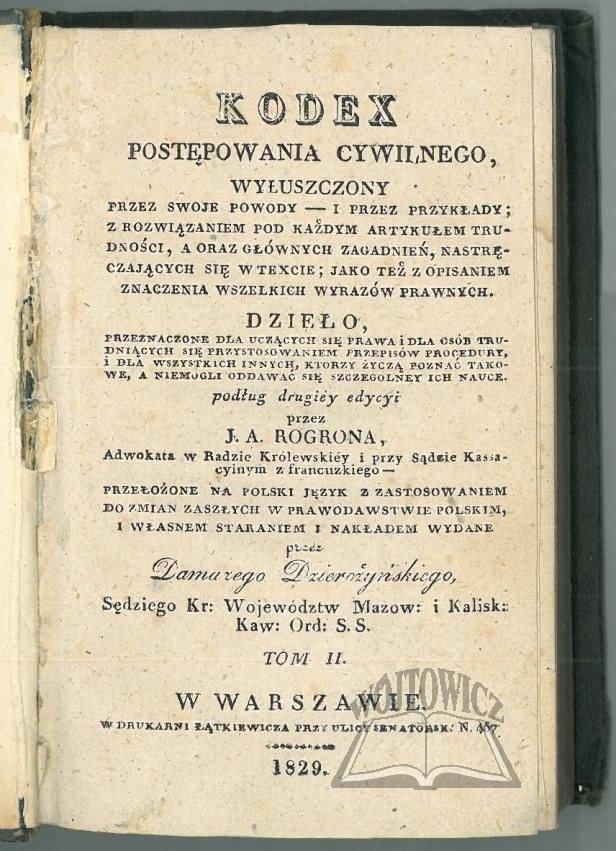 KODEX
POSTĘPOWANIA CYWILNEGO,
WYŁUSZCZONY
PRZEZ SWOJE POWODY — I PRZEZ PRZYKŁADY;
Z ROZWIĄZANIEM POD KAŻDYM ARTYKUŁEM TRU-
DNOŚCI, A ORAZ GŁÓWNYCH ZAGADNIEŃ, NASTRĘ-
CZAJĄCYCH SIĘ W TEXCIE; JAKO TEŻ Z OPISANIEM
ZNACZENIA WSZELKICH WYRAZÓW PRAWNYCH.
DZIEŁO,
PRZEZNACZONE DLA UCZĄCYCH SIĘ PRAWA i DLA OSÓB TRU-
DNIĄCYCH SIĘ PRZYSTOSOWANIEM PRZEPISÓW PROCEDURY,
i DLA WSZYSTKICH INNYCH, KTORZY ŻYCZĄ POZNAĆ TAKO-
WE, A NIEMOGLI ODDAWAĆ SIĘ SZCZEGOLNEY ICH NAUCE.
podług drugiéy edycyi
przez
J. A. ROGRONA,
Adwokata w Radzie Królewskiéy i przy Sądzie Kassa-
cyinym z francuzkiego —
PRZEŁOŻONE NA POLSKI JĘZYK Z ZASTOSOWANIEM
DO ZMIAN ZASZŁYCH W PRAWODAWSTWIE POLSKIM,
I WŁASNEM STARANIEM I NAKŁADEM WYDANE
przez
Damazego Dzierożyńskiego,
Sędziego Kr: Województw Mazow: i Kalisk:
Kaw: Ord: S. S.
TOM II.
W WARSZAWIE.
W DRUKARNI ŁĄTKIEWICZA PRZY ULICY SENATORSK: N. 467
1829.
WÓJTOWICZ